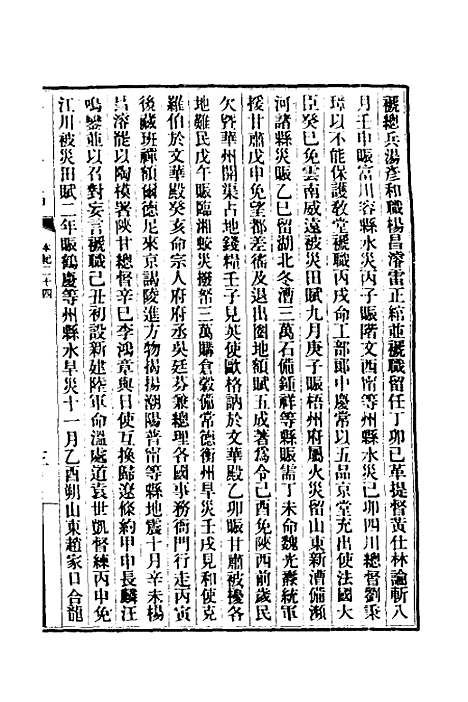 褫總兵湯彥和職楊昌濬雷正綰並褫職留任丁卯已革提督黃仕林論斬八
月壬申賑富川谷縣水災丙子賑階文西甯等州縣水災己卯四川總督劉秉
璋以不能保護敎堂褫職丙戌命工部郎中慶常以五品京堂充出使法國大
臣癸巳免雲南威遠被災田賦九月庚子賑梧州府屬火災留山東新漕備瀕
河諸縣災賑乙巳留湖北冬漕三萬石備鍾祥等縣賑需丁未命魏光燾統軍
援甘肅戊申免望都差徭及退出圈地額賦五成著爲令己酉免陝西前歲民
欠曁華州開集占地錢糧壬子見英使歐格訥於文華殿乙卯賑甘肅被擾各
地難民戊午賑臨湘蛟災撥帑三萬購倉穀備常德衡州旱災壬戌見和使克
羅伯於文華殿癸亥命宗人府府丞吳廷芬兼總理各國事務衙門行走丙寅
後藏班禪額爾德尼來京謁陵進方物揭揚潮陽普甯等縣地震十月辛未楊
昌濬罷以陶模署陝甘總督辛巳李鴻章與日使互換歸遼條約甲申長麟汪
鳴鑾並以召對妄言褫職己丑初設新建陸軍命溫處道袁世凱督練丙申免
江川被災田賦二年賑鶴慶等州縣水旱災十一月乙酉朔山東趙家口合龍
本紀二十四